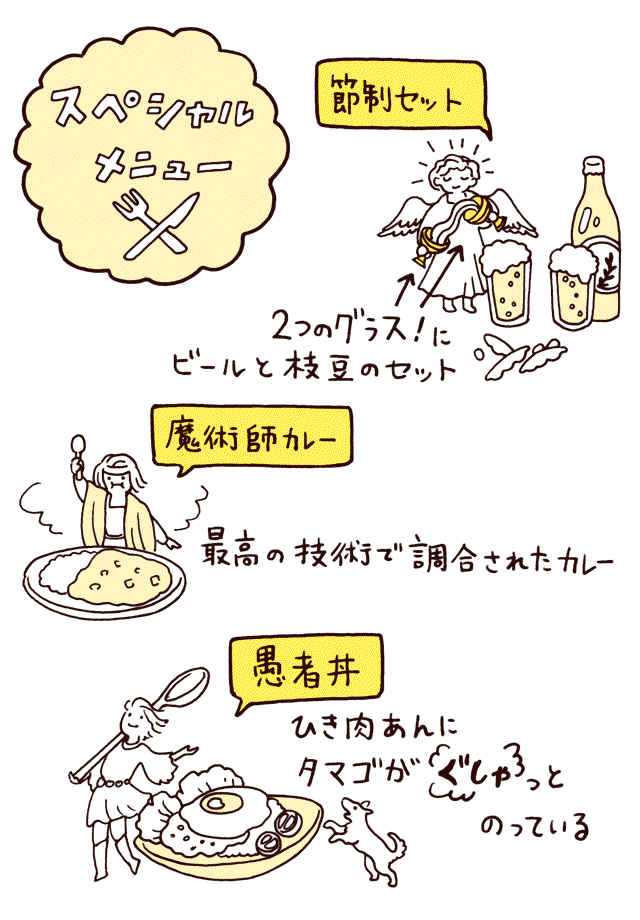 スペシャル
メニュー
節制セット
2つのグラス!に
ビールと枝豆のセット
魔術師カレー
最高の技術で調合されたカレー
愚者丼
ひき肉あんに
タマゴがぐしゃっと
のっている